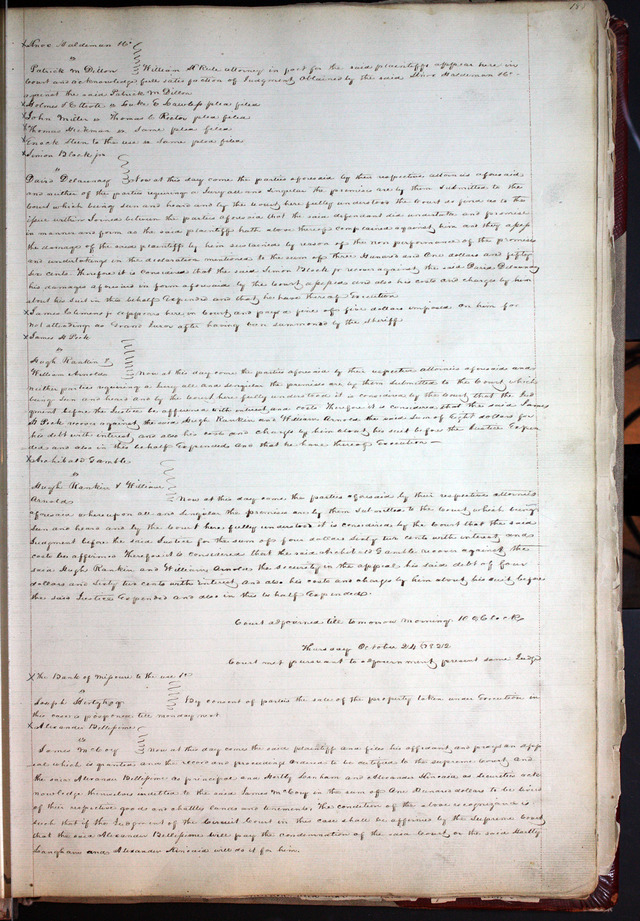 Knox Haldeman &c
vs
Patrick M Dillon } William McRee attorney in fact for the said plaintiffs appear here in
Court and acknowledge full satisfaction of Judgment obtained by the said Knox Haldeman &c
against the said Patrick M Dillon
Holmes & Elliott vs Luke E Lawless plea filed
John Miller vs Thomas C Rector plea filed
Thomas Hickman vs Same plea filed
Enoch Steen to the use vs Same plea filed
Simon Block jr
vs
David Delaunay } Now at this day come the parties aforesaid by their respective attornies aforesaid
and neither of the parties requiring a Jury all and Singular the premises are by them Submitted to the
Court which being Seen and heard and by the Court here fully understood the Court so found as to the
issue within Joined between the parties aforesaid that the said defendant did undertake and promise
in manner and form as the said plaintiff hath above thereof complained against him and they assess
the damage of the said plaintiff by him sustained by reason of the non performance of the promises
and undertakings in the declaration mentioned to the sum of three Hundred and One dollars and fifty
Six Cents. Therefore it is Considered that the said Simon Block jr recover against the said David Delaunay
his damages aforesaid in form aforesaid by the Court assessed and also his costs and charges by him
about his Suit in this behalf Expended and that he have thereof Execution
James Clemens jr appears here in Court and pays a fine of five dollars imposed on him for
not attending as Grand Juror after having been summoned by the Sheriff
James H Peck
vs
Hugh Rankin &
William Arnold } Now at this day come the parties aforesaid by their respective attornies aforesaid and
neither parties requiring a Jury all and Singular the premises are by them submitted to the Court which
being Seen and heard and by the Court here fully understood it is considered by the Court that the Jud
gment before the Justice be affirmed with interest and costs Therefore it is considered that the said James
H Peck recover against the said Hugh Rankin and William Arnold the said Sum of Eight dollars for
his debt with interest and also his costs and charges by him about his suit before the Justice Expen
ded and also in this behalf Expended and that he have thereof Execution
Archibald Gamble
vs
Hugh Rankin & William
Arnold } Now at this day come the parties aforesaid by their respective attornies
aforesaid whereupon all and Singular the premises are by them Submitted to the Court which being
Seen and heard and by the Court here fully understood it is considered by the Court that the said
Judgment before the said Justice for the sum of four dollars Sixty two cents with interest and
costs be affirmed Therefore it is considered that the said Archibald Gamble recover against the
said Hugh Rankin and William Arnold the security in the appeal his said debt of four
dollars and Sixty two cents with interest and also his costs and charges by him about his suit before
the said Justice Expended and also in this behalf Expended.
Court adjourned till tomorrow morning 10 O Clock
Thursday October 24
Court met pursuant to adjournment present same Judge
The Bank of Missouri to the use &c
vs
Joseph Hertzog } By consent of parties the sale of the property taken under Execution in
this case is postponed till monday next
Alexander Bellissime
vs
James McCoy } Now at this day come the said plaintiff and files his affidavit and prays an app
eal which is granted and the record and proceedings ordered to be certified to the Supreme Court. And
the said Alexander Bellissime as principal and Hartly Lanham and Alexander as Securities ack
nowledge themselves indebted to the said James McCoy in the sum of One Hundred dollars to be levied
of their respective goods and chattles lands and tenements. The condition of the above recognizance is
such that if the Judgment of the Circuit Court in this case shall be affirmed by the Supreme Court
that the said Alexander Bellissime will pay the condemnation of the said Court or the said Hartly
Lanham and Alexander will do it for him.